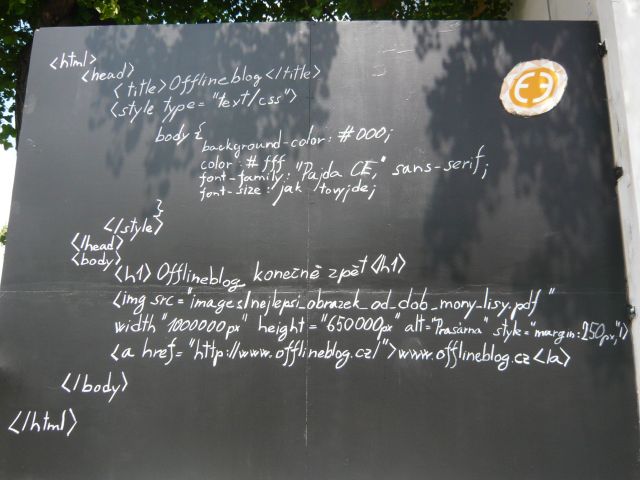 <html>
<head>
<title>Offlineblog</title>
<style type="text/css">
body {
background-color: #000;
color: #fff
font-family: "Pajda CE," sans-serif;
font-size: jak to vyjde;
}
</style>
</head>
<body>
<h1>Offlineblog konečně zpět<h1>
<img src="images/nejlepsi_obrazek_od_dob_mony_lisy.pdf"
width"1000000px" height="650000px" alt="Prasárna" style="margin:250px;"/>
<a href="http://www.offlineblog.cz/">www.offlineblog.cz</a>
</body>
</html>